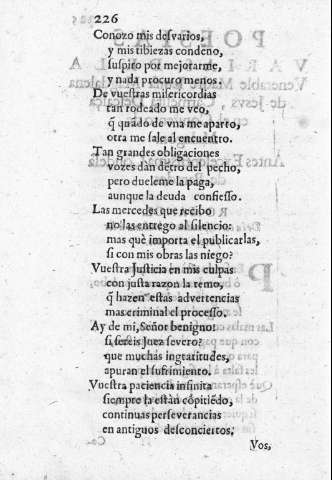 226
Conozo mis desvarios,
y mis tibiezas condeno,
suspiro por mejorarme,
y nada procuro menos.
De vuestras misericordias
tan rodeado me veo,
q̃ quãdo de vna me aparto,
otra me sale al encuentro.
Tan grandes obligaciones
vozes dan dẽtro del pecho,
pero dueleme la paga,
aunque la deuda confiesso.
Las mercedes que recibo
no las entrego al silencio:
mas què importa el publicarlas,
si con mis obras las niego?
Vuestra Iusticia en mis culpas
con justa razon la temo,
q̃ hazen estas advertencias
mas criminal el processo.
Ay de mi, Señor benigno!
si sereis Juez severo?
que muchas ingratitudes,
apuran el sufrimiento.
Vuestra paciencia infinita
siempre la estàn cõpitiẽdo,
continuas perseverancias
en antiguos desconciertos;
Vos,